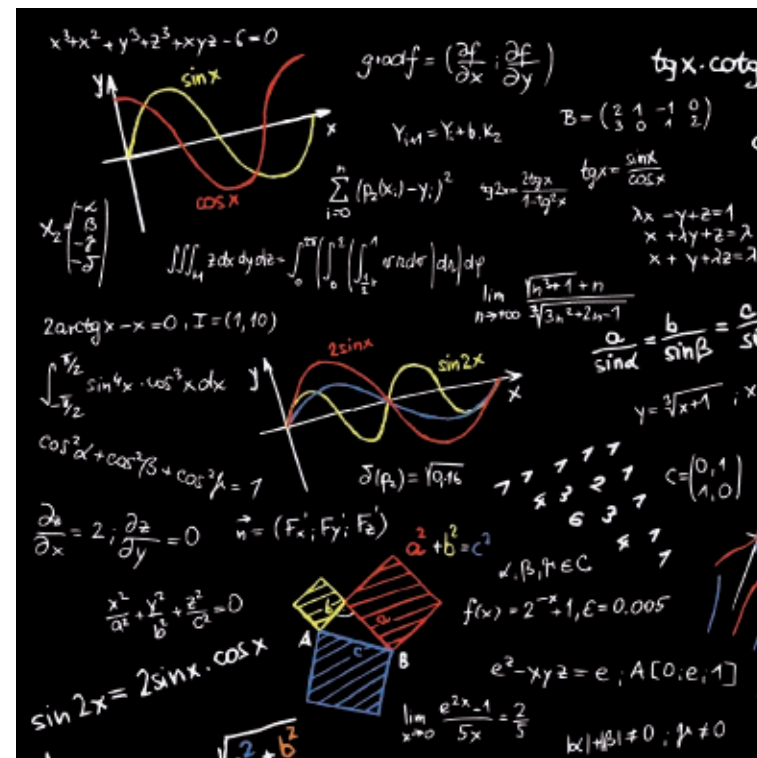 x³+x²+y³+z³+xyz-6=0
gradf = (∂f/∂x ; ∂f/∂y)
tgx·cotg
y
sinx
x
cosx
Yᵢ₊₁ = Yᵢ + b.K₂
B = (2 1 -1 0
3 0 1 2)
∑ⁿᵢ₌₀ (p₂(xᵢ)-yᵢ)²
tg2x = 2tgx/1-tg²x
tgx = sinx/cosx
X₂ = (-α
β
-γ
-δ)
λx -y+z=1
x +λy+z=λ
x + y+λz=λ
∭M zdxdydz =
lim n→+∞ √n³+1 + n / ∛3n²+2n-1
2arctgx-x=0, I=(1,10)
a/sinα = b/sinβ = c/si
∫-π/2 π/2 sin⁴x·cos³xdx
y
2sinx
sin2x
x
y = ∛x+1 ; x
cos²α+cos²β+cos²γ=1
δ(p₂) = √0,16
1 1 1 1 1
4 3 2 1
6 3 1
4 1
1
C = (0,1
1,0)
∂z/∂x = 2 ; ∂z/∂y = 0
n⃗ = (Fx'; Fy'; Fz')
a²+b²=c²
α,β,γ∈C
x²/a² + y²/b² + z²/c² = 0
b
a
A
c
B
f(x) = 2⁻ˣ+1, ε = 0.005
sin2x = 2sinx·cosx
eᶻ-xyz = e ; A[0;e;1]
lim x→0 e²ˣ-1/5x = 2/5
|α|+|β|≠0 ; γ≠0
² + b²